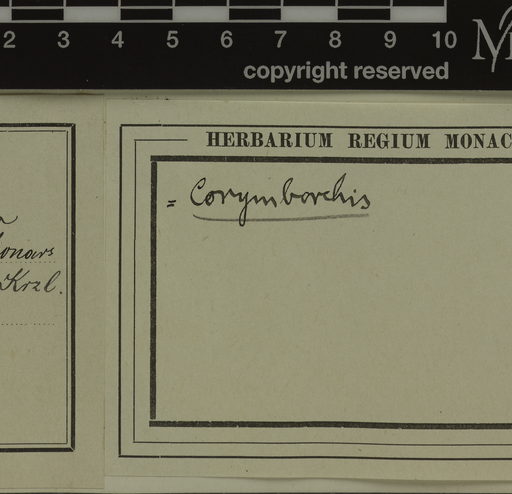 2 3 4 5 6 7 8 9 10
copyright reserved
HERBARIUM REGIUM MONAC
= Corymborchis
onars
Krzl.